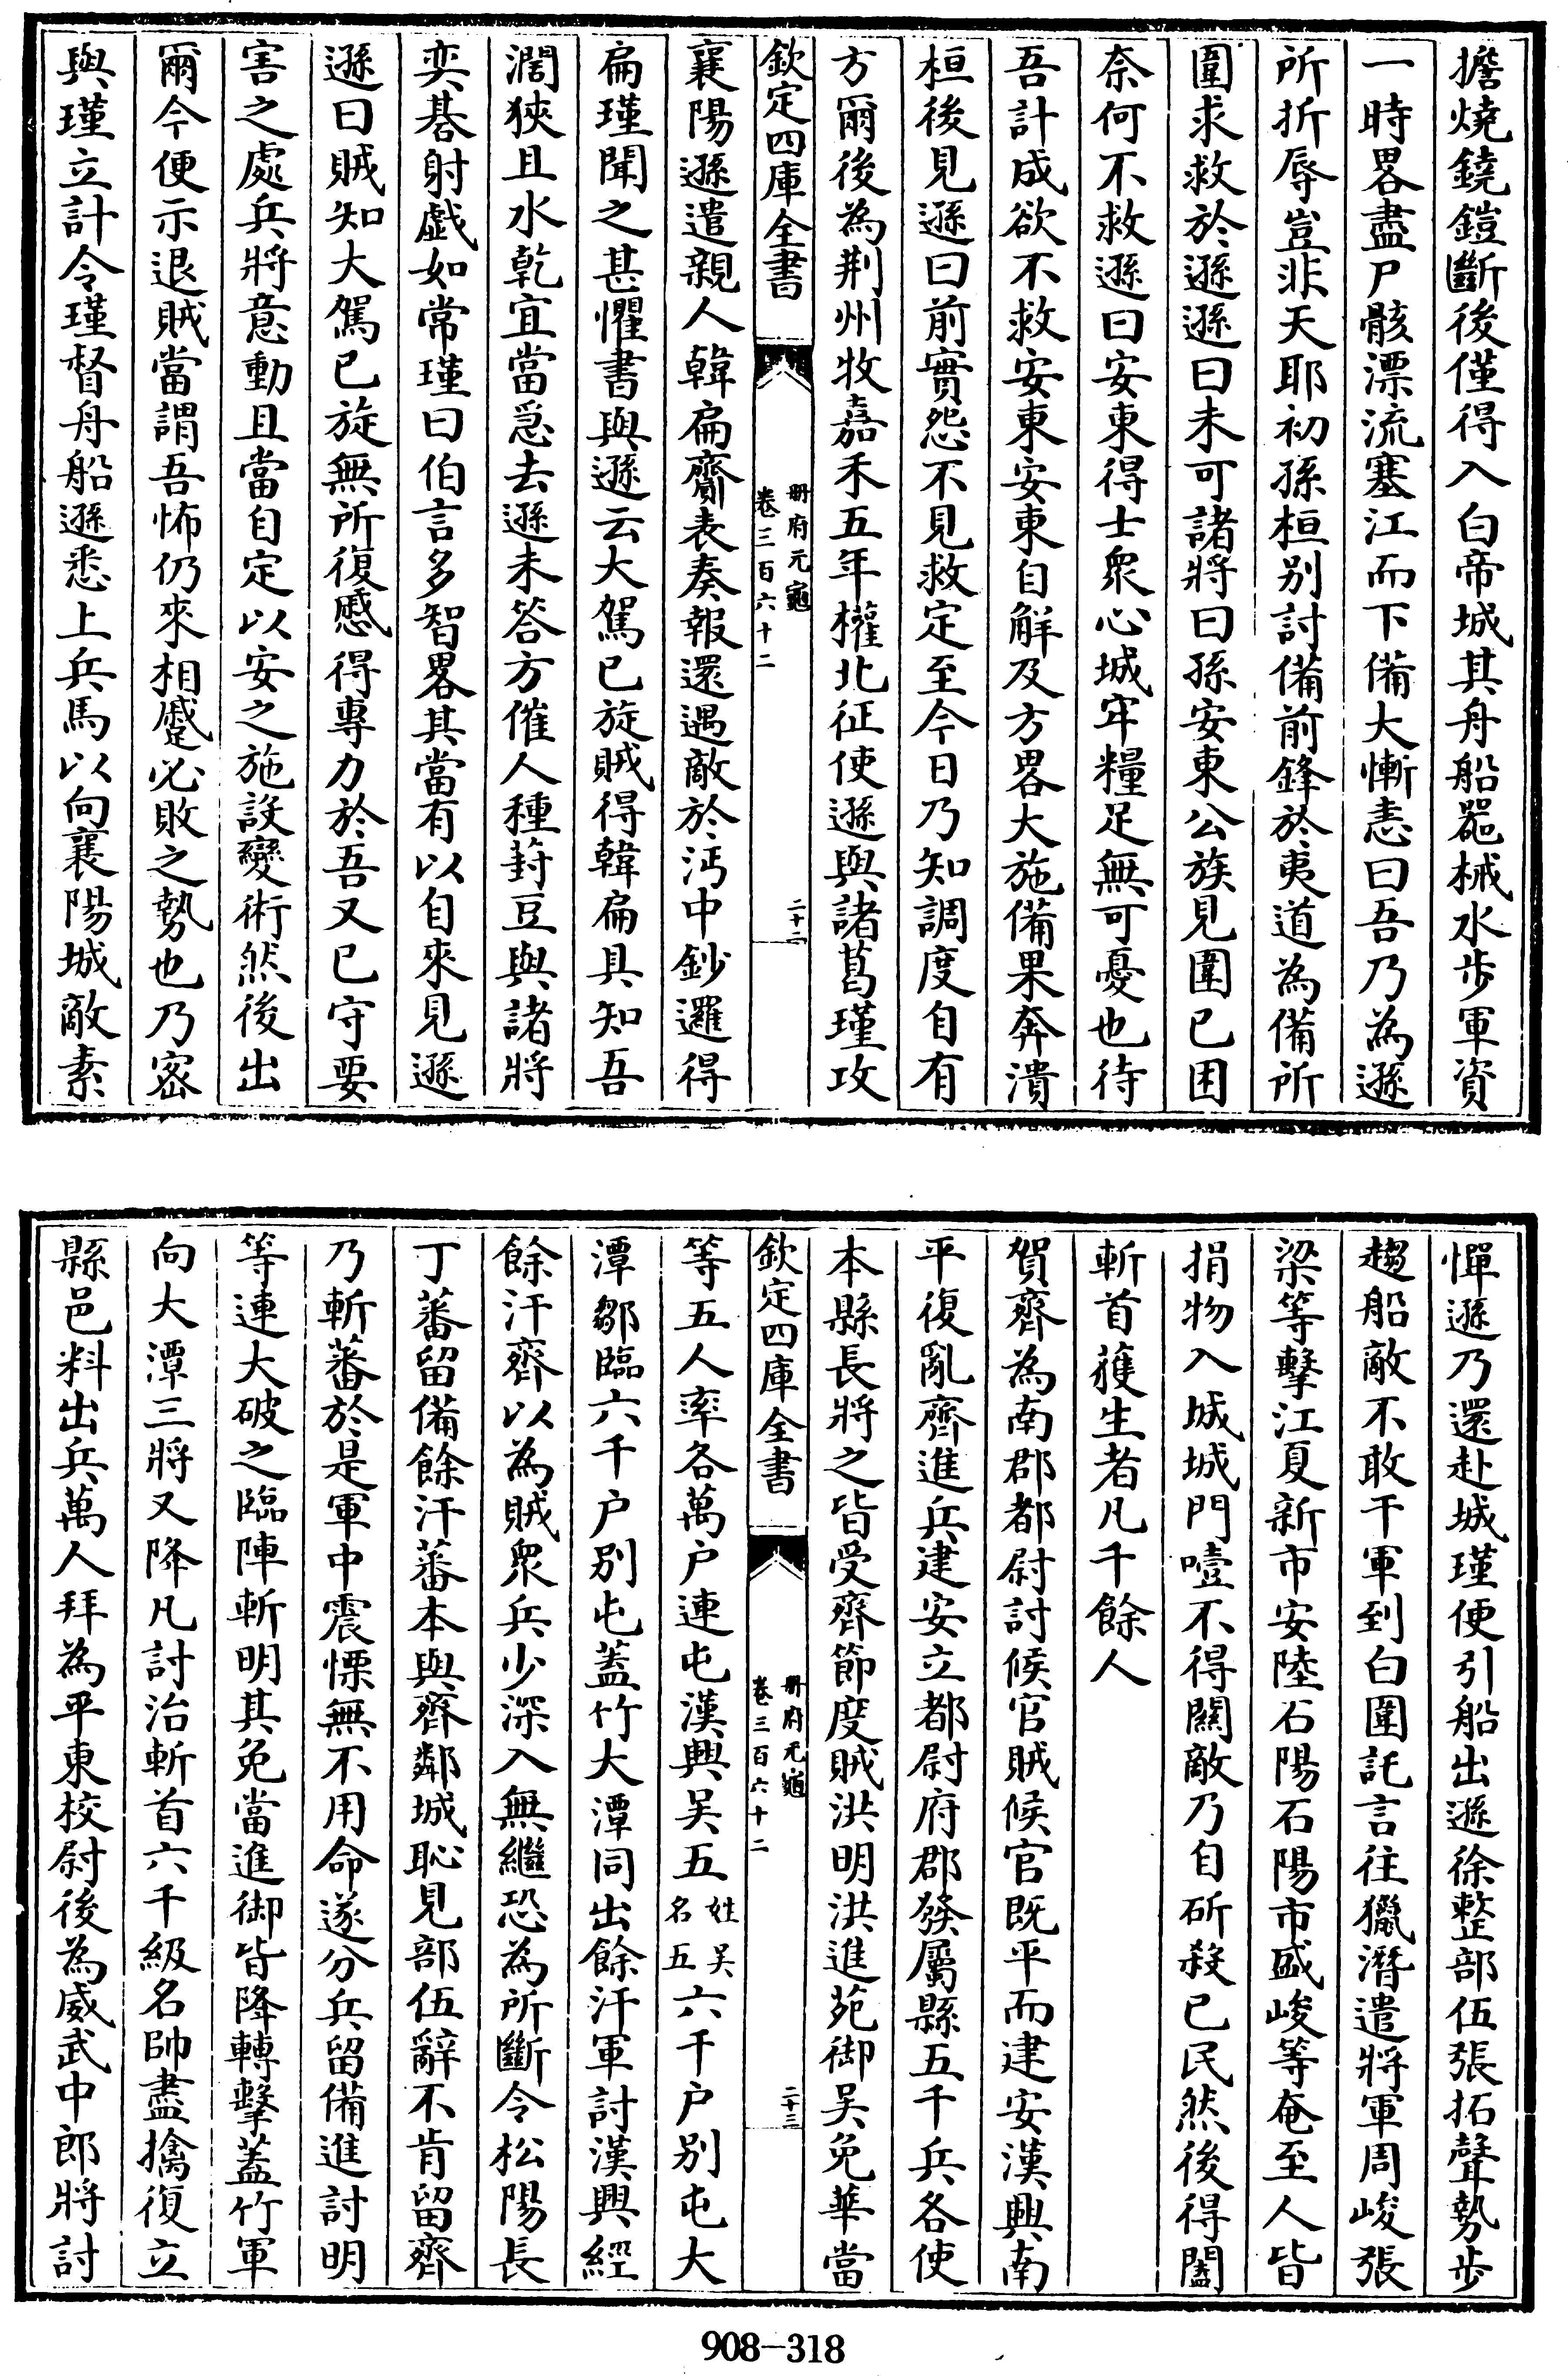 擔燒鐃鎧斷後僅得入白帝城其舟船器械水步軍資
一時畧盡尸骸漂流塞江而下備大慚恚曰吾乃為遜
所折辱豈非天耶初孫桓别討備前鋒於夷道為備所
圍求救於遜遜曰未可諸將曰孫安東公族見圍已困
奈何不救遜曰安東得士衆心城牢糧足無可憂也待
吾計成欲不救安東安東自解及方畧大施備果奔潰
桓後見遜曰前實怨不見救定至今日乃知調度自有
方爾後為荆州牧嘉禾五年權北征使遜與諸葛瑾攻
欽定四庫全書
冊府元龜
卷三百六十二
二十二
襄陽遜遣親人韓扁齎表奏報還遇敵於沔中鈔邏得
扁瑾聞之甚懼書與遜云大駕已旋賊得韓扁具知吾
濶狹且水乾宜當急去遜未答方催人種葑豆與諸將
奕碁射戯如常瑾曰伯言多智畧其當有以自來見遜
遜曰賊知大駕已旋無所復慼得專力於吾又已守要
害之處兵將意動且當自定以安之施設變術然後出
爾今便示退賊當謂吾怖仍來相蹙必敗之勢也乃宻
與瑾立計令瑾督舟船遜悉上兵馬以向襄陽城敵素
憚遜乃還赴城瑾便引船出遜徐整部伍張拓聲勢步
趨船敵不敢干軍到白圍託言往獵潛遣將軍周峻張
梁等擊江夏新市安陸石陽石陽市盛峻等奄至人皆
捐物入城城門噎不得闗敵乃自斫殺已民然後得闔
斬首獲生者凡千餘人
賀齊為南郡都尉討候官賊候官既平而建安漢興南
平復亂齊進兵建安立都尉府郡發屬縣五千兵各使
本縣長將之皆受齊節度賊洪明洪進苑御吴免華當
欽定四庫全書
冊府元龜
卷三百六十二
二十三
等五人率各萬户連屯漢興吴五姓吴名五六千户别屯大
潭鄒臨六千户别屯蓋竹大潭同出餘汗軍討漢興經
餘汗齊以為賊衆兵少深入無繼恐為所斷令松陽長
丁蕃留備餘汗蕃本與齊鄰城恥見部伍辭不肯留齊
乃斬蕃於是軍中震慄無不用命遂分兵留備進討明
等連大破之臨陣斬明其免當進御皆降轉擊蓋竹軍
向大潭三將又降凡討治斬首六千級名帥盡擒復立
縣邑料出兵萬人拜為平東校尉後為威武中郎將討
908-318